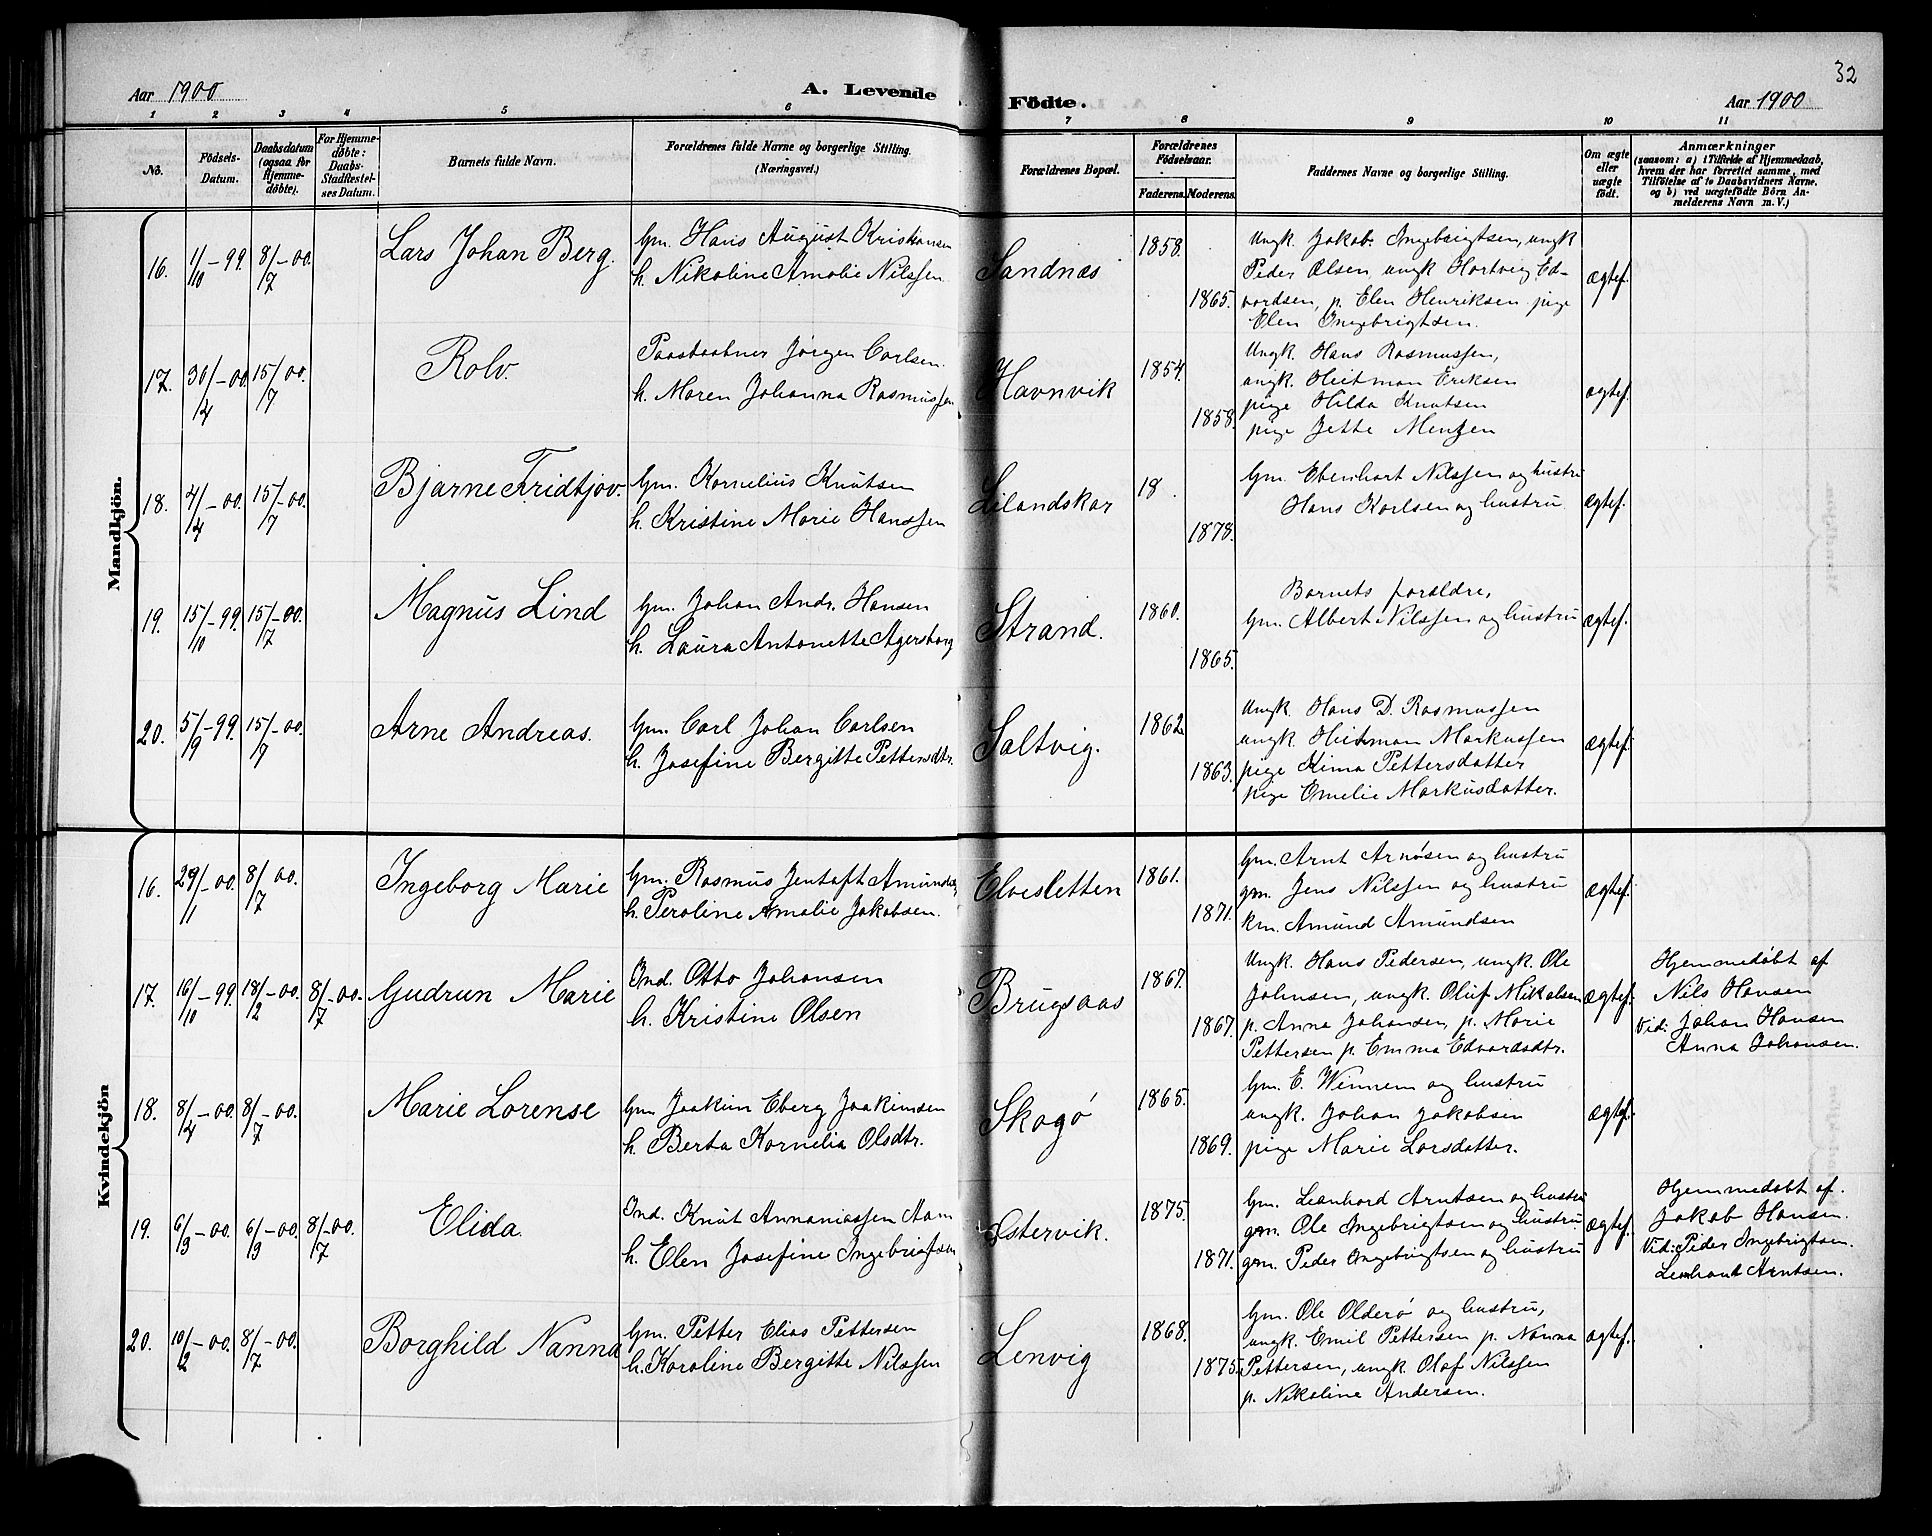 32
Aar 1900
A. Levende
Födte.
Aar 1900
1 2 3 4 5 6 7 8 9 10 11
No.
Födsels-
Datum.
Daabsdatum
(ogsaa for
Hjemme-
döbte).
For Hjemme-
døbte:
Daabs-
Stadfæstel-
ses Datum.
Barnets fulde Navn.
Forældrenes fulde Navne og borgerlige Stilling.
(Næringsvei.)
Forældrenes Bopæl.
Forældrenes
Fødselsaar.
Faderens.
Moderens.
Faddernes Navne og borgerlige Stilling.
Om ægte
eller
uægte
født.
Anmærkninger
(saasom: a) i Tilfælde af Hjemmedaab,
hvem der har forrettet samme, med
Tilføielse af to Daabsvidners Navne,
og b) ved uægtefødte Børn An-
melderens Navn m. V.)
Mandkjön.
16. 1/10-99. 8/7-00.
Lars Johan Berg.
Gm. Hans August Kristiansen
h. Nikoline Amalie Nilssen.
Sandnæs
1858.
1865.
Ungk. Jakob Ingebrigtsen, ungk
Peder Olsen, ungk Hartvig Ed-
vardsen, p. Elen Henriksen pige
Elen Ingebrigtsen.
ægtef.
17. 30/4-00. 15/7-00.
Rolv.
Jørgen Carlsen.
h. Maren Johanna Rasmussen
Havnvik
1854.
1858.
Ungk. Hans Rasmussen,
ungk. Heitman Eriksen
pige Hilda Knutsen
pige Jette Mentzen
ægtef.
18. 4/4-00. 15/7-00.
Bjarne Fridtjov.
Gm. Kornelius Knutsen
h. Kristine Marie Hanssen
Lilandskar
18
1878.
Gm. Ebenhart Nilssen og hustru
Hans Karlsen og hustru
ægtef.
19. 15/10-99. 15/7-00.
Magnus Lind
Gm. Johan Andr. Hansen
h. Laura Antonette Agersborg
Strand.
1860.
1865.
Barnets forældre,
Gm. Albert Nilssen og hustru
ægtef.
20. 5/9-99. 15/7-00.
Arne Andreas.
Gm. Carl Johan Carlsen
h. Josefine Bergitte Pettersdtr.
Saltvig.
1862
1863.
Ungk. Hans D. Rasmussen
ungk. Heitman Markussen
pige Kima Pettersdatter
pige Emelie Markusdatter.
ægtef.
Kvindekjön
16. 29/11-00. 8/7-00.
Ingeborg Marie
Gm. Rasmus Jentoft
h. Peroline Amalie Jakobsen.
Elvesletten
1861.
1871.
Gm. Arnt Arnøsen og hustru
gm. Jens Nilssen og hustru
km. Amund Amundsen
ægtef.
17. 16/10-99. 18/2-00. 8/7-00.
Gudrun Marie
Ind. Otto Johansen
h. Kristine Olsen
Brugsaas
1867.
1867.
Ungk. Hans Pedersen, ungk. Ole
Johnsen, ungk. Oluf Mikalsen
p. Anna Johansen, p. Marie
Pettersen p. Emma Edvardsdtr.
ægtef.
Hjemmedøbt af
Nils Hansen
Vid: Johan Hansen
Anna Johansen.
18. 8/4-00. 8/7-00.
Marie Lorense
Gm Joakim Eberg Joakimsen
h. Berta Kornelia Olsdtr.
Skogø
1865.
1869.
Gm. E. Winnem og hustru
ungk. Johan Jakobsen
pige Marie Larsdatter.
ægtef.
19. 6/3-00. 6/3-00. 8/7-00.
Elida.
Ind. Knut Annaniassen Aam
h. Elen Josefine Ingebrigtsen
Østervik.
1875.
1871.
Gm. Leonhard Arntsen og hustru
gm. Ole Ingebrigtsen og hustru
gm. Peder Ingebrigtsen og hustru
ægtef.
Hjemmedøbt af.
Jakob Hansen.
Vid: Peder Ingebrigtsen.
Lenhart Arntsen.
20. 10/2-00. 8/7-00.
Borghild Nanna
Gm. Petter Elias Pettersen
h. Karoline Bergitte Nilssen
Lenvig
1868.
1875.
Gm. Ole Olderø og hustru,
ungk. Emil Pettersen p. Nanna
Pettersen, ungk. Olaf Nilssen
p. Nikoline Andersen.
ægtef.